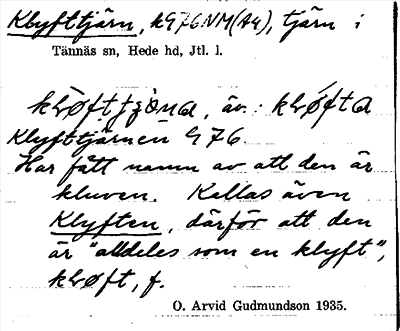 Klyfttjärn, k976NM(A4), tjärn i
Tännäs sn, Hede hd, Jtl. l.
av.
Klyfttjärnen 976.
Har fått namn av att den är
kluven. Kallas även
Klyften, därför att den
är "alldeles som en klyft",
f.
O. Arvid Gudmundson 1935.